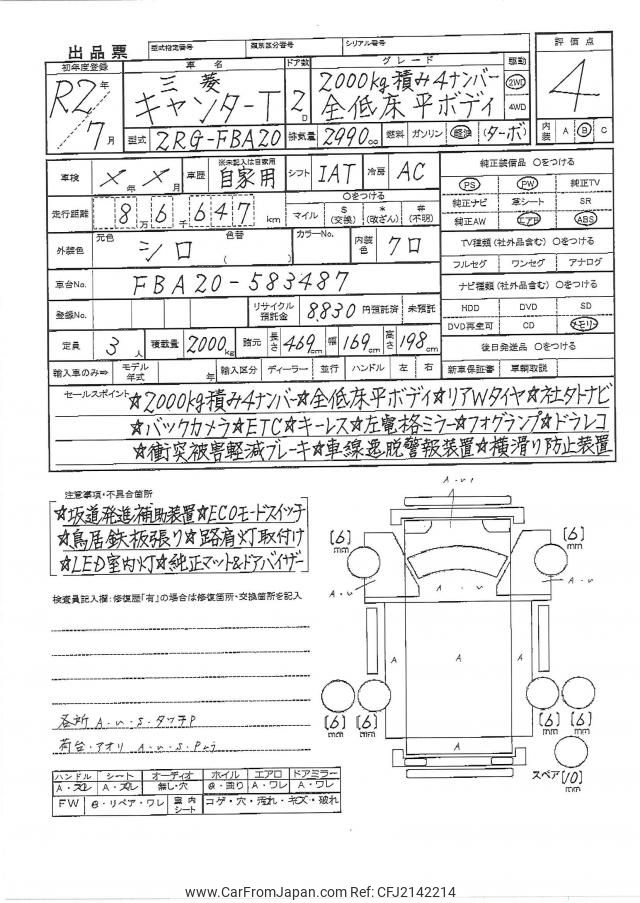 出品票
型式指定番号 類別区分番号 シリアル番号
初年度登録 車名 ドア数 グレード 駆動 評価点
R2年 7月
三菱 キャンターT
2D
2000kg積み4ナンバー
全低床平ボディ
2WD
4WD
4
型式 2RG-FBA20 排気量 2990cc 燃料 ガソリン 軽油 (ターボ)
内装 A B C
車検 ×年×月 車歴 ※未記入は自家用 自家用 シフト IAT 冷房 AC
純正装備品 ○をつける
PS PW 純正TV
純正ナビ 革シート SR
純正AW エアB ABS
走行距離 8万6千647km
○をつける
マイル $(交換) *(改ざん) #(不明)
TV種類(社外品含む) ○をつける
フルセグ ワンセグ アナログ
外装色 元色 シロ 色替 ( ) カラーNo. 内装色 クロ
車台No. FBA20-583487
ナビ種類(社外品含む) ○をつける
HDD DVD SD
DVD再生可 CD メモリー
登録No. リサイクル預託金 8,830 円預託済 未預託
定員 3人 積載量 2000kg 諸元 長さ 469cm 幅 169cm 高さ 198cm
後日発送品 ○をつける
輸入車のみ⇒ モデル年式 年 輸入区分 ディーラー 並行 ハンドル 左 右 新車保証書 車輌取説
セールスポイント ☆2000kg積み4ナンバー☆全低床平ボディ☆リアWタイヤ☆社外ナビ
☆バックカメラ☆ETC☆キーレス☆左電格ミラー☆フォグランプ☆ドラレコ
☆衝突被害軽減ブレーキ☆車線逸脱警報装置☆横滑り防止装置
注意事項・不具合箇所
☆坂道発進補助装置☆ECOモードスイッチ
☆鳥居鉄板張り☆路肩灯取付け
☆LED室内灯☆純正マット&ドアバイザー
検査員記入欄:修復歴「有」の場合は修復箇所・交換箇所を記入
各所 A・U・S・タッチP
荷台・アオリ A・U・S・P
A・U
[6]mm
[6]mm
A・U
A・U
A
A
A
[6]mm
[6]mm
[6]mm
[6]mm
A
スペア[10]mm
ハンドル シート オーディオ ホイル エアロ ドアミラー
A・スレ A・スレ 無し・穴 曲り A・ワレ A・ワレ
FW リペア・ワレ 室内シート コゲ・穴・汚れ・キズ・破れ
www.CarFromJapan.com Ref: CFJ2142214